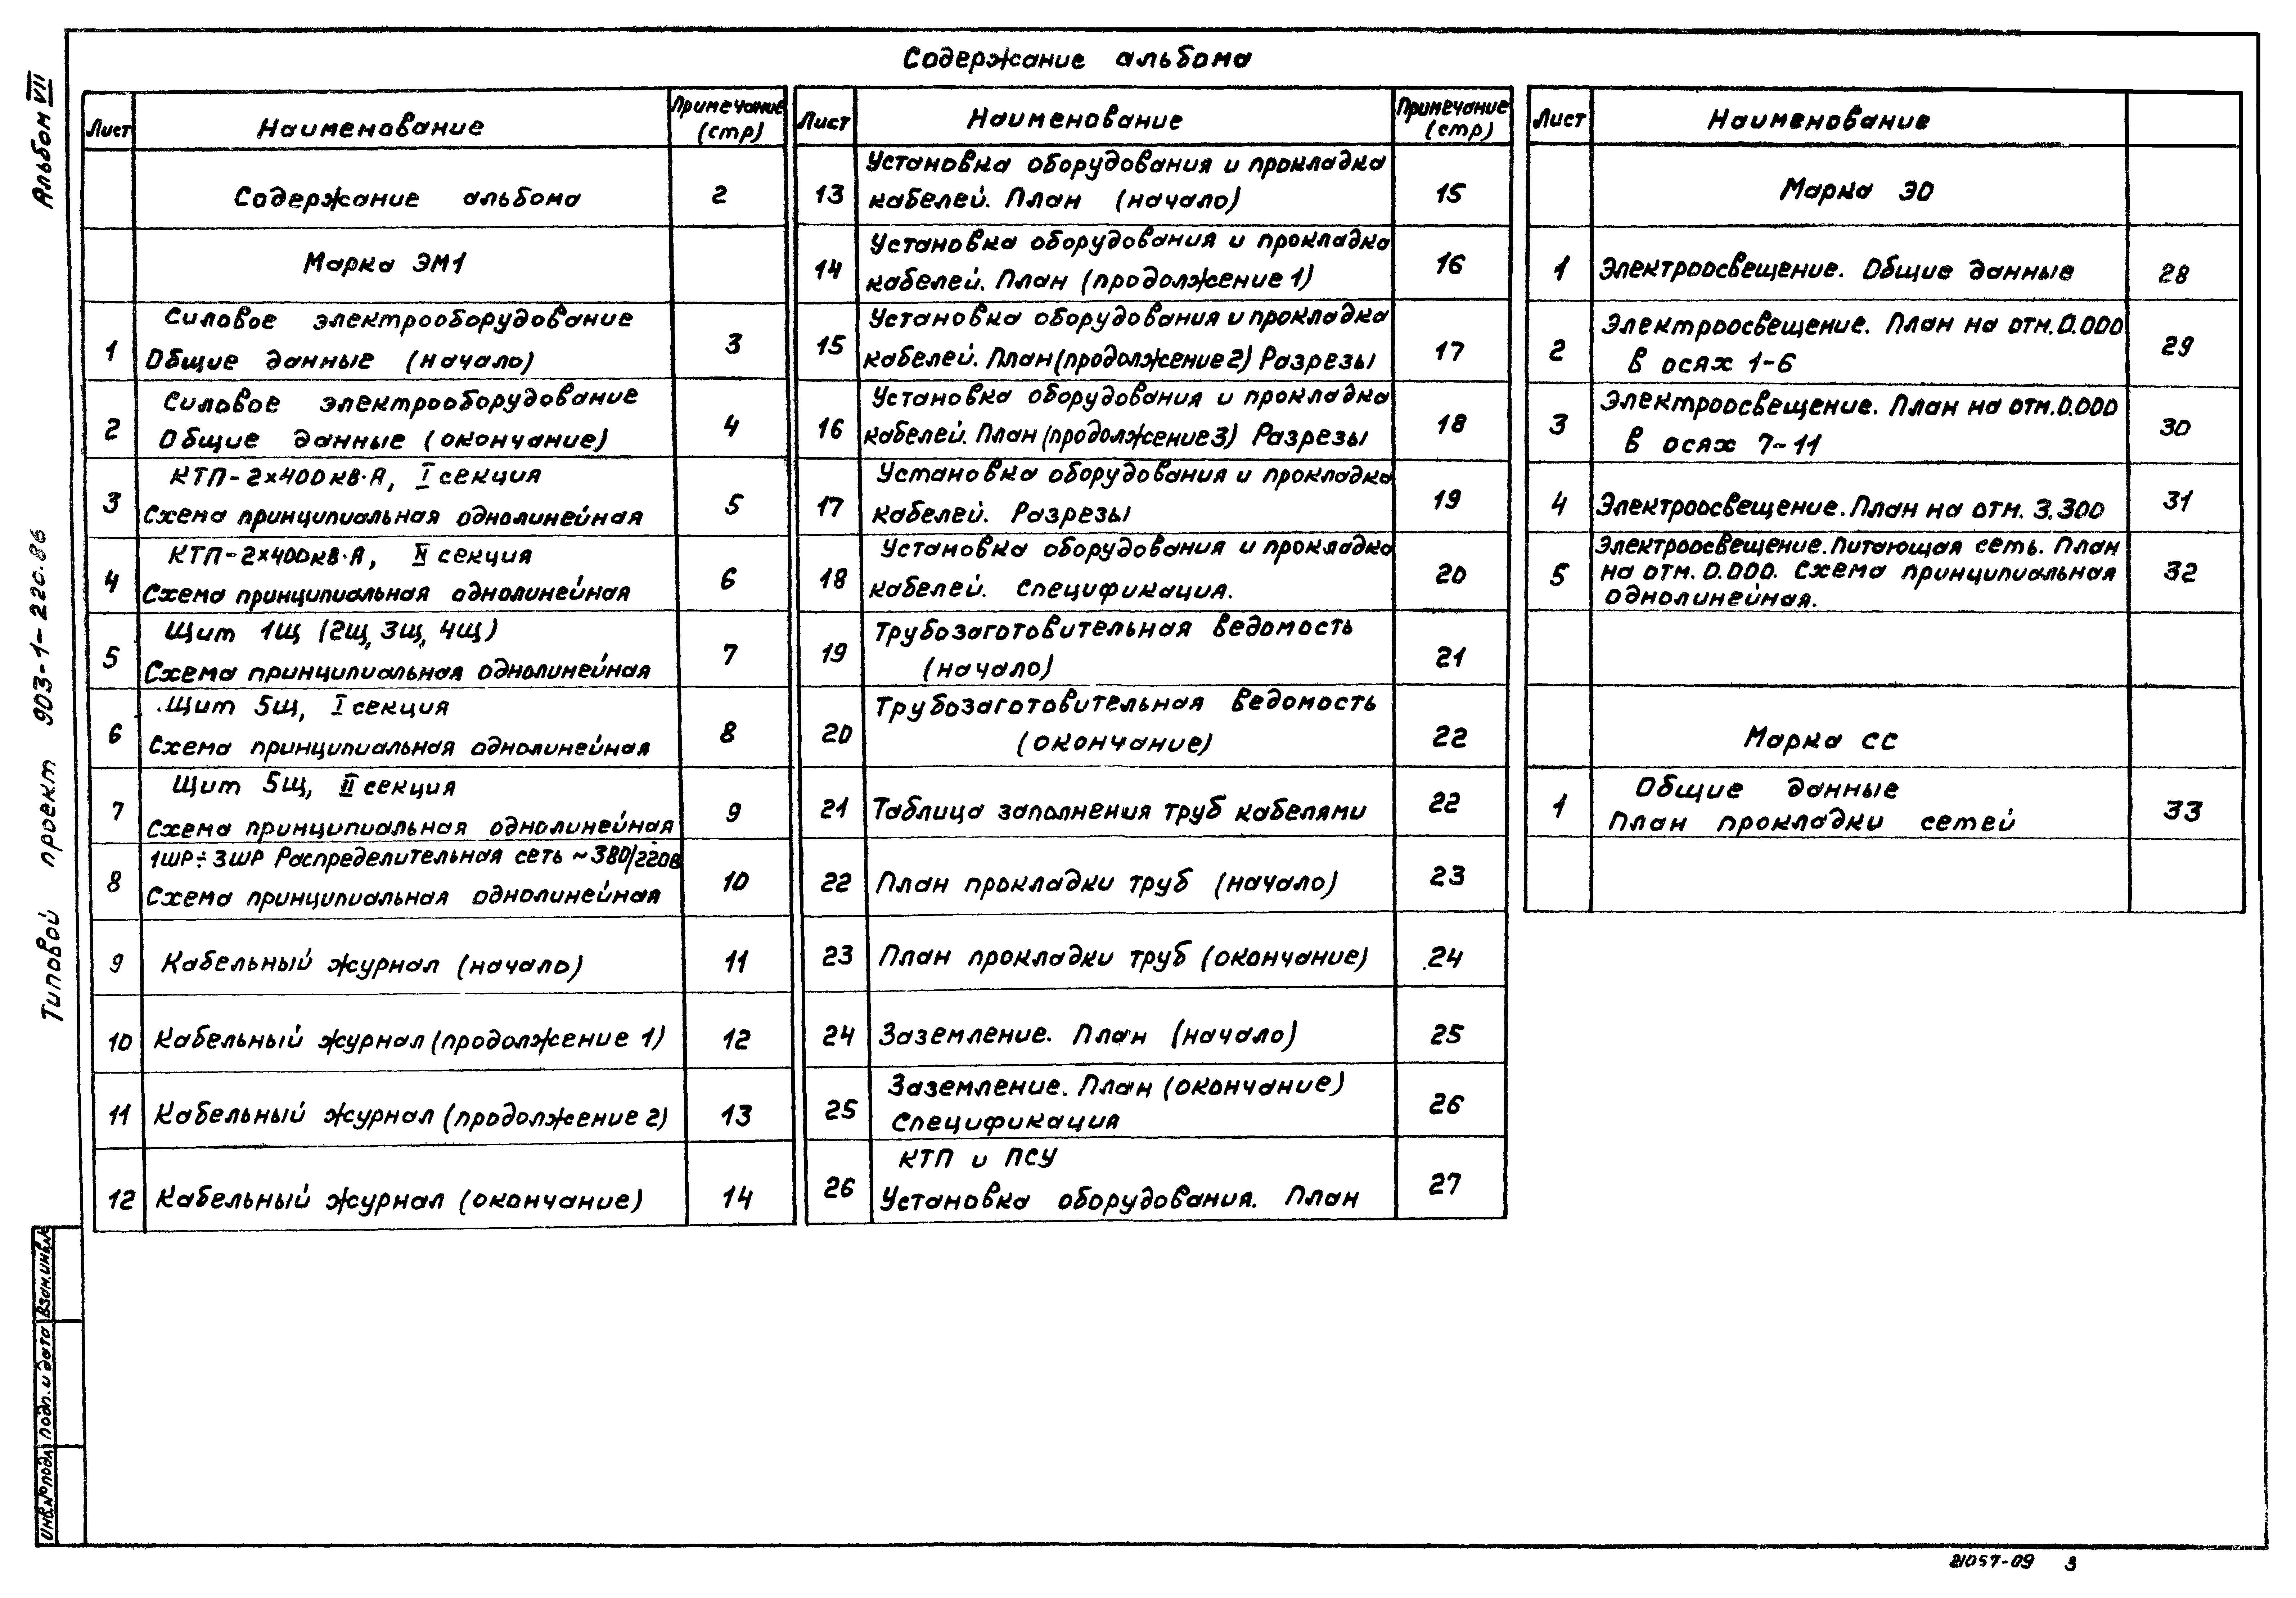 Содержание альбома
Альбом VII
Типовой проект 903-1-220.86
Лист
Наименование
Примечание
(стр)
Содержание альбома
2
Марка ЭМ1
1
Силовое электрооборудование
Общие данные (начало)
3
2
Силовое электрооборудование
Общие данные (окончание)
4
3
КТП-2×400кВ·А, I секция
Схема принципиальная однолинейная
5
4
КТП-2×400кВ·А, II секция
Схема принципиальная однолинейная
6
5
Щит 1Щ (2Щ, 3Щ, 4Щ)
Схема принципиальная однолинейная
7
6
Щит 5Щ, I секция
Схема принципиальная однолинейная
8
7
Щит 5Щ, II секция
Схема принципиальная однолинейная
9
8
1ШР÷3ШР Распределительная сеть ~380/220В
Схема принципиальная однолинейная
10
9
Кабельный журнал (начало)
11
10
Кабельный журнал (продолжение 1)
12
11
Кабельный журнал (продолжение 2)
13
12
Кабельный журнал (окончание)
14
Лист
Наименование
Примечание
(стр)
13
Установка оборудования и прокладка
кабелей. План (начало)
15
14
Установка оборудования и прокладка
кабелей. План (продолжение 1)
16
15
Установка оборудования и прокладка
кабелей. План (продолжение 2) Разрезы
17
16
Установка оборудования и прокладка
кабелей. План (продолжение 3) Разрезы
18
17
Установка оборудования и прокладка
кабелей. Разрезы
19
18
Установка оборудования и прокладка
кабелей. Спецификация.
20
19
Трубозаготовительная ведомость
(начало)
21
20
Трубозаготовительная ведомость
(окончание)
22
21
Таблица заполнения труб кабелями
22
22
План прокладки труб (начало)
23
23
План прокладки труб (окончание)
24
24
Заземление. План (начало)
25
25
Заземление. План (окончание)
Спецификация
26
26
КТП и ПСУ
Установка оборудования. План
27
Лист
Наименование
Марка ЭО
1
Электроосвещение. Общие данные
28
2
Электроосвещение. План на отм. 0.000
в осях 1-6
29
3
Электроосвещение. План на отм. 0.000
в осях 7-11
30
4
Электроосвещение. План на отм. 3.300
31
5
Электроосвещение. Питающая сеть. План
на отм. 0.000. Схема принципиальная
однолинейная.
32
Марка СС
1
Общие данные
План прокладки сетей
33
Взам.инв.№
Подп. и дата
Инв.№подл
21057-09 3